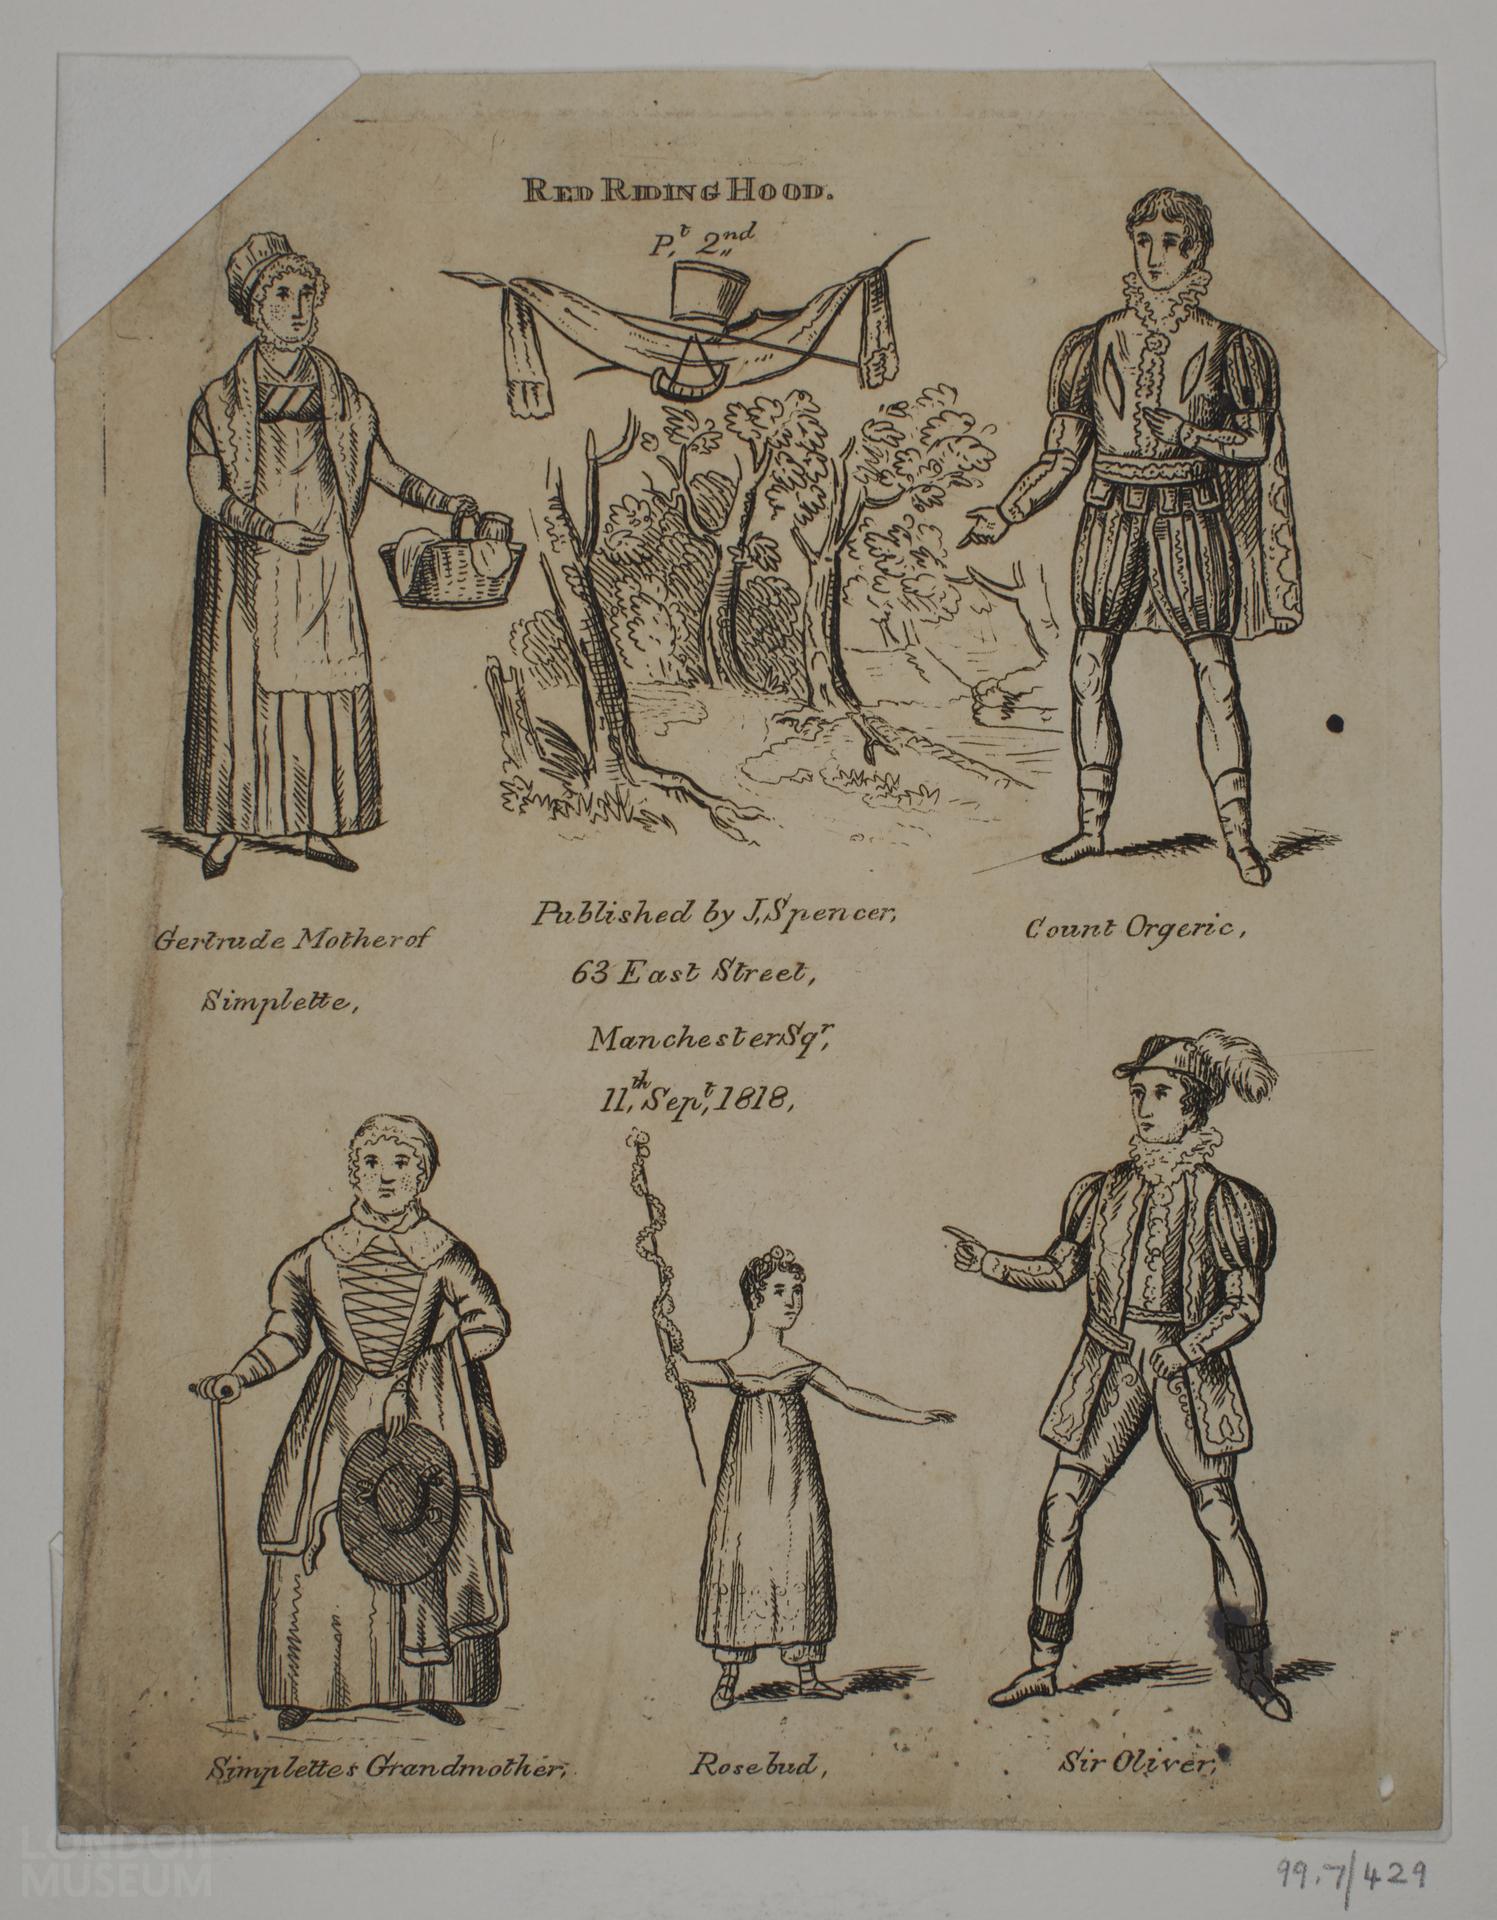 RED RIDING HOOD.
Pt, 2nd
Gertrude Mother of
Simplette,
Published by J, Spencer,
63 East Street,
Manchester Sqr,
11,th Sept, 1818,
Count Orgeric,
Simplettes Grandmother,
Rosebud,
Sir Oliver,
LONDON
MUSEUM
99.7/429